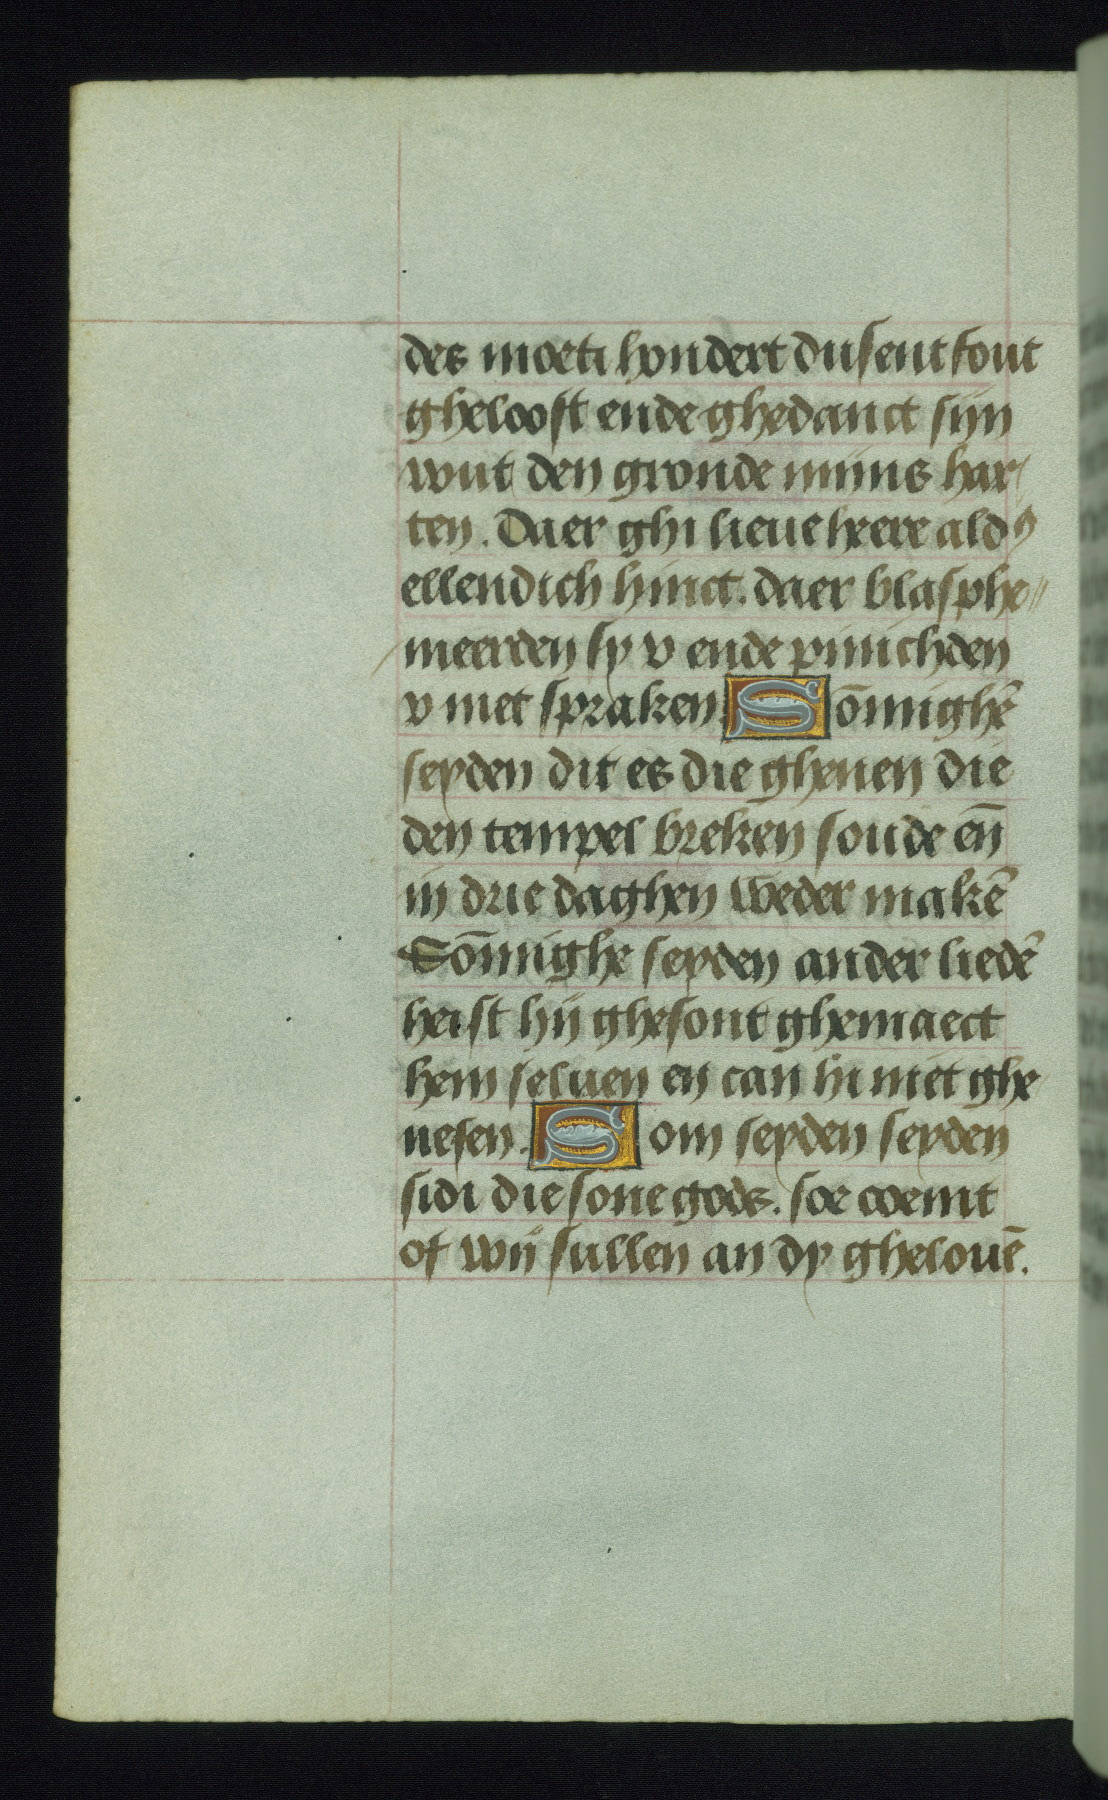 des moeti hondert dusent fout
ghelooft ende ghedanct sijn
wut den gronde mijns har
ten. Daer ghi lieue heere aldꝰ
ellendich hinct. daer blasphe〃
meerden sy v ende pijnichden
v met spraken. Sōmighē
seyden dit es die ghenen die
den tempel breken soude en̄
in drie daghen weder makē
Sōmighe seyden ander liedē
heist hij ghesont ghemaect
hem seluen en can hi niet ghe
nesen. Som seyden seyden
sidi die sone gods. soe coemt
of wij sullen an dy ghelouē.